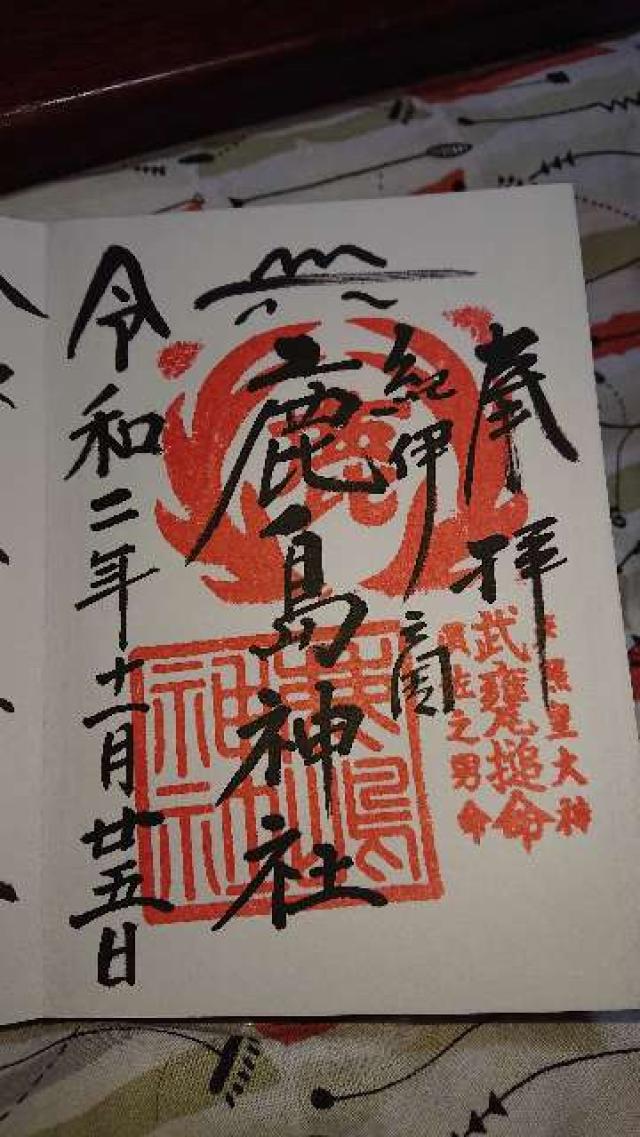 奉拝
天照皇大神
武甕槌命
須佐之男命
紀伊國
鹿島神社
令和二年十一月廿五日